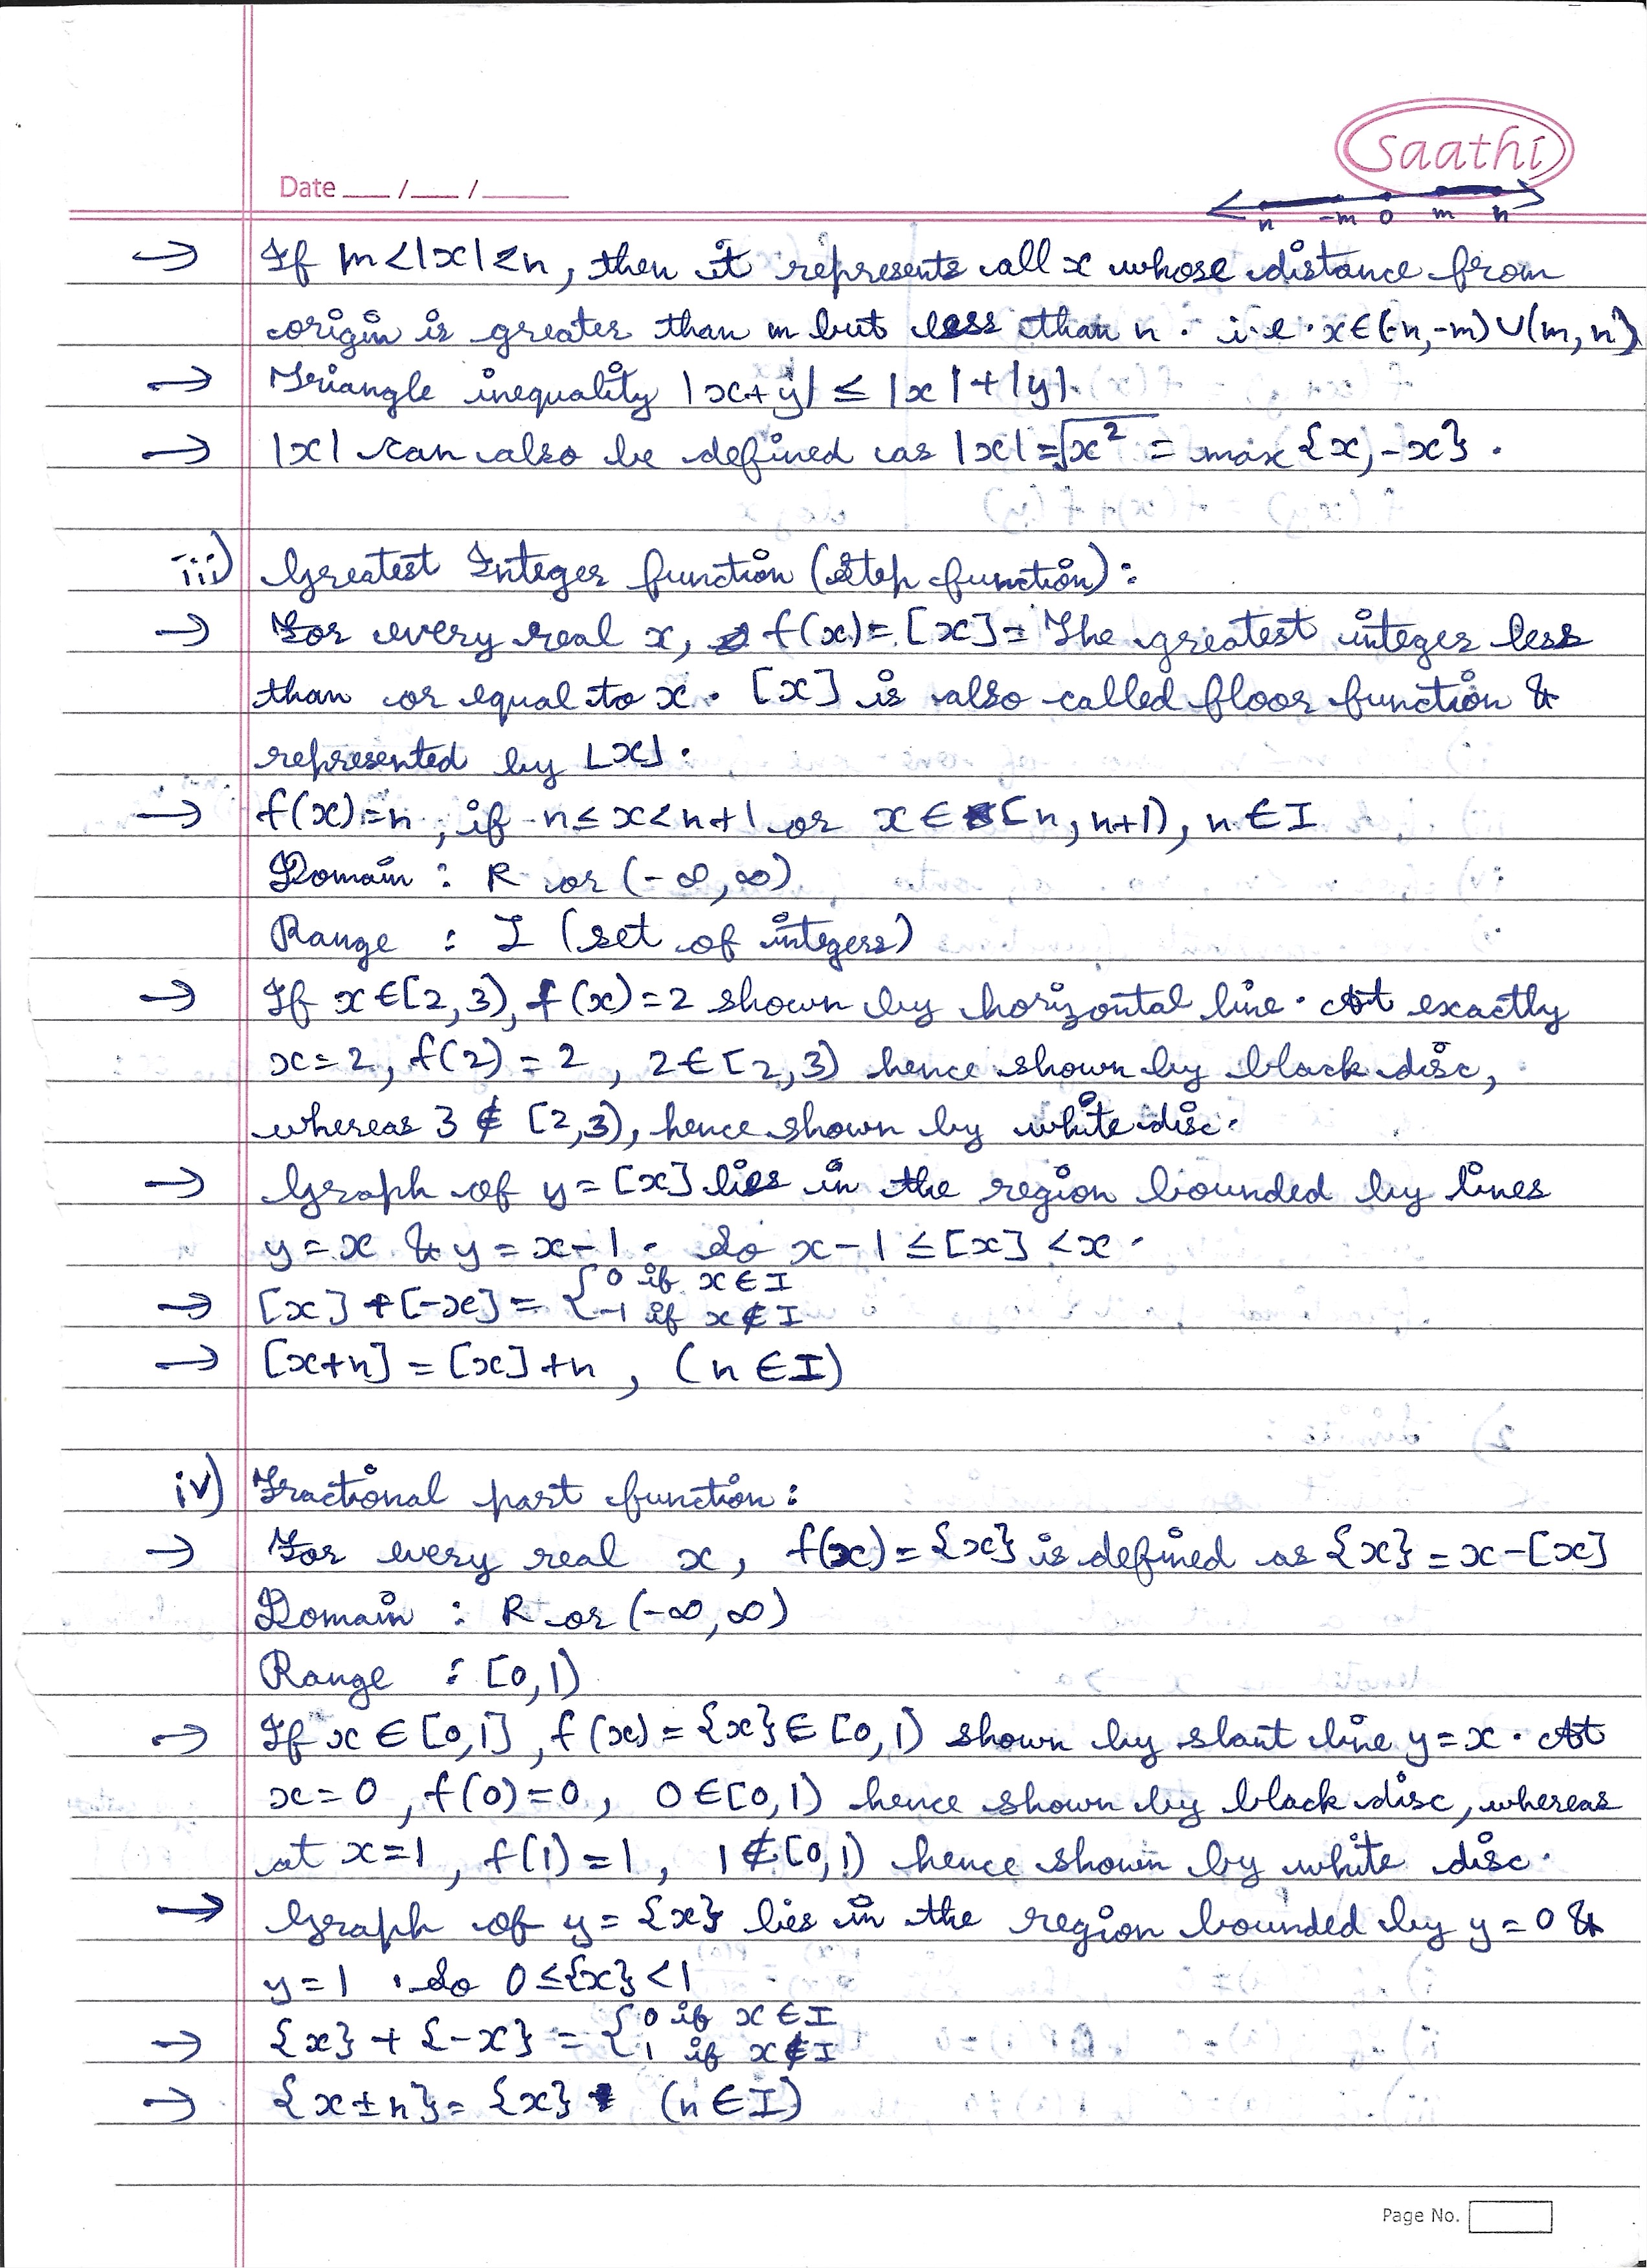 saathi
Date ___/___/______
n -m 0 m n
→ If m<|x|<n, then it represents all x whose distance from
origin is greater than m but less than n. i.e. x∈(-n,-m)∪(m,n)
→ Triangle inequality |x+y| ≤ |x|+|y|.
→ |x| can also be defined as |x|=√x² = max {x,-x}.
iii) Greatest Integer function (Step function):
→ For every real x, f(x)=[x]=The greatest integer less
than or equal to x. [x] is also called floor function &
represented by ⌊x⌋.
→ f(x)=n, if n≤x<n+1 or x∈[n,n+1), n∈I
Domain : R or (-∞,∞)
Range : I (set of integers)
→ If x∈[2,3), f(x)=2 shown by horizontal line. At exactly
x=2, f(2)=2, 2∈[2,3) hence shown by black disc,
whereas 3∉[2,3), hence shown by white disc.
→ Graph of y=[x] lies in the region bounded by lines
y=x & y=x-1. So x-1≤[x]<x.
→ [x]+[-x]={0 if x∈I
-1 if x∉I
→ [x+n]=[x]+n, (n∈I)
iv) Fractional part function:
→ For every real x, f(x)={x} is defined as {x}=x-[x]
Domain : R or (-∞,∞)
Range : [0,1)
→ If x∈[0,1], f(x)={x}∈[0,1) shown by slant line y=x. At
x=0, f(0)=0, 0∈[0,1) hence shown by black disc, whereas
at x=1, f(1)=1, 1∉[0,1) hence shown by white disc.
→ Graph of y={x} lies in the region bounded by y=0 &
y=1. So 0≤{x}<1
→ {x}+{-x}={0 if x∈I
1 if x∉I
→ {x±n}={x} (n∈I)
Page No.